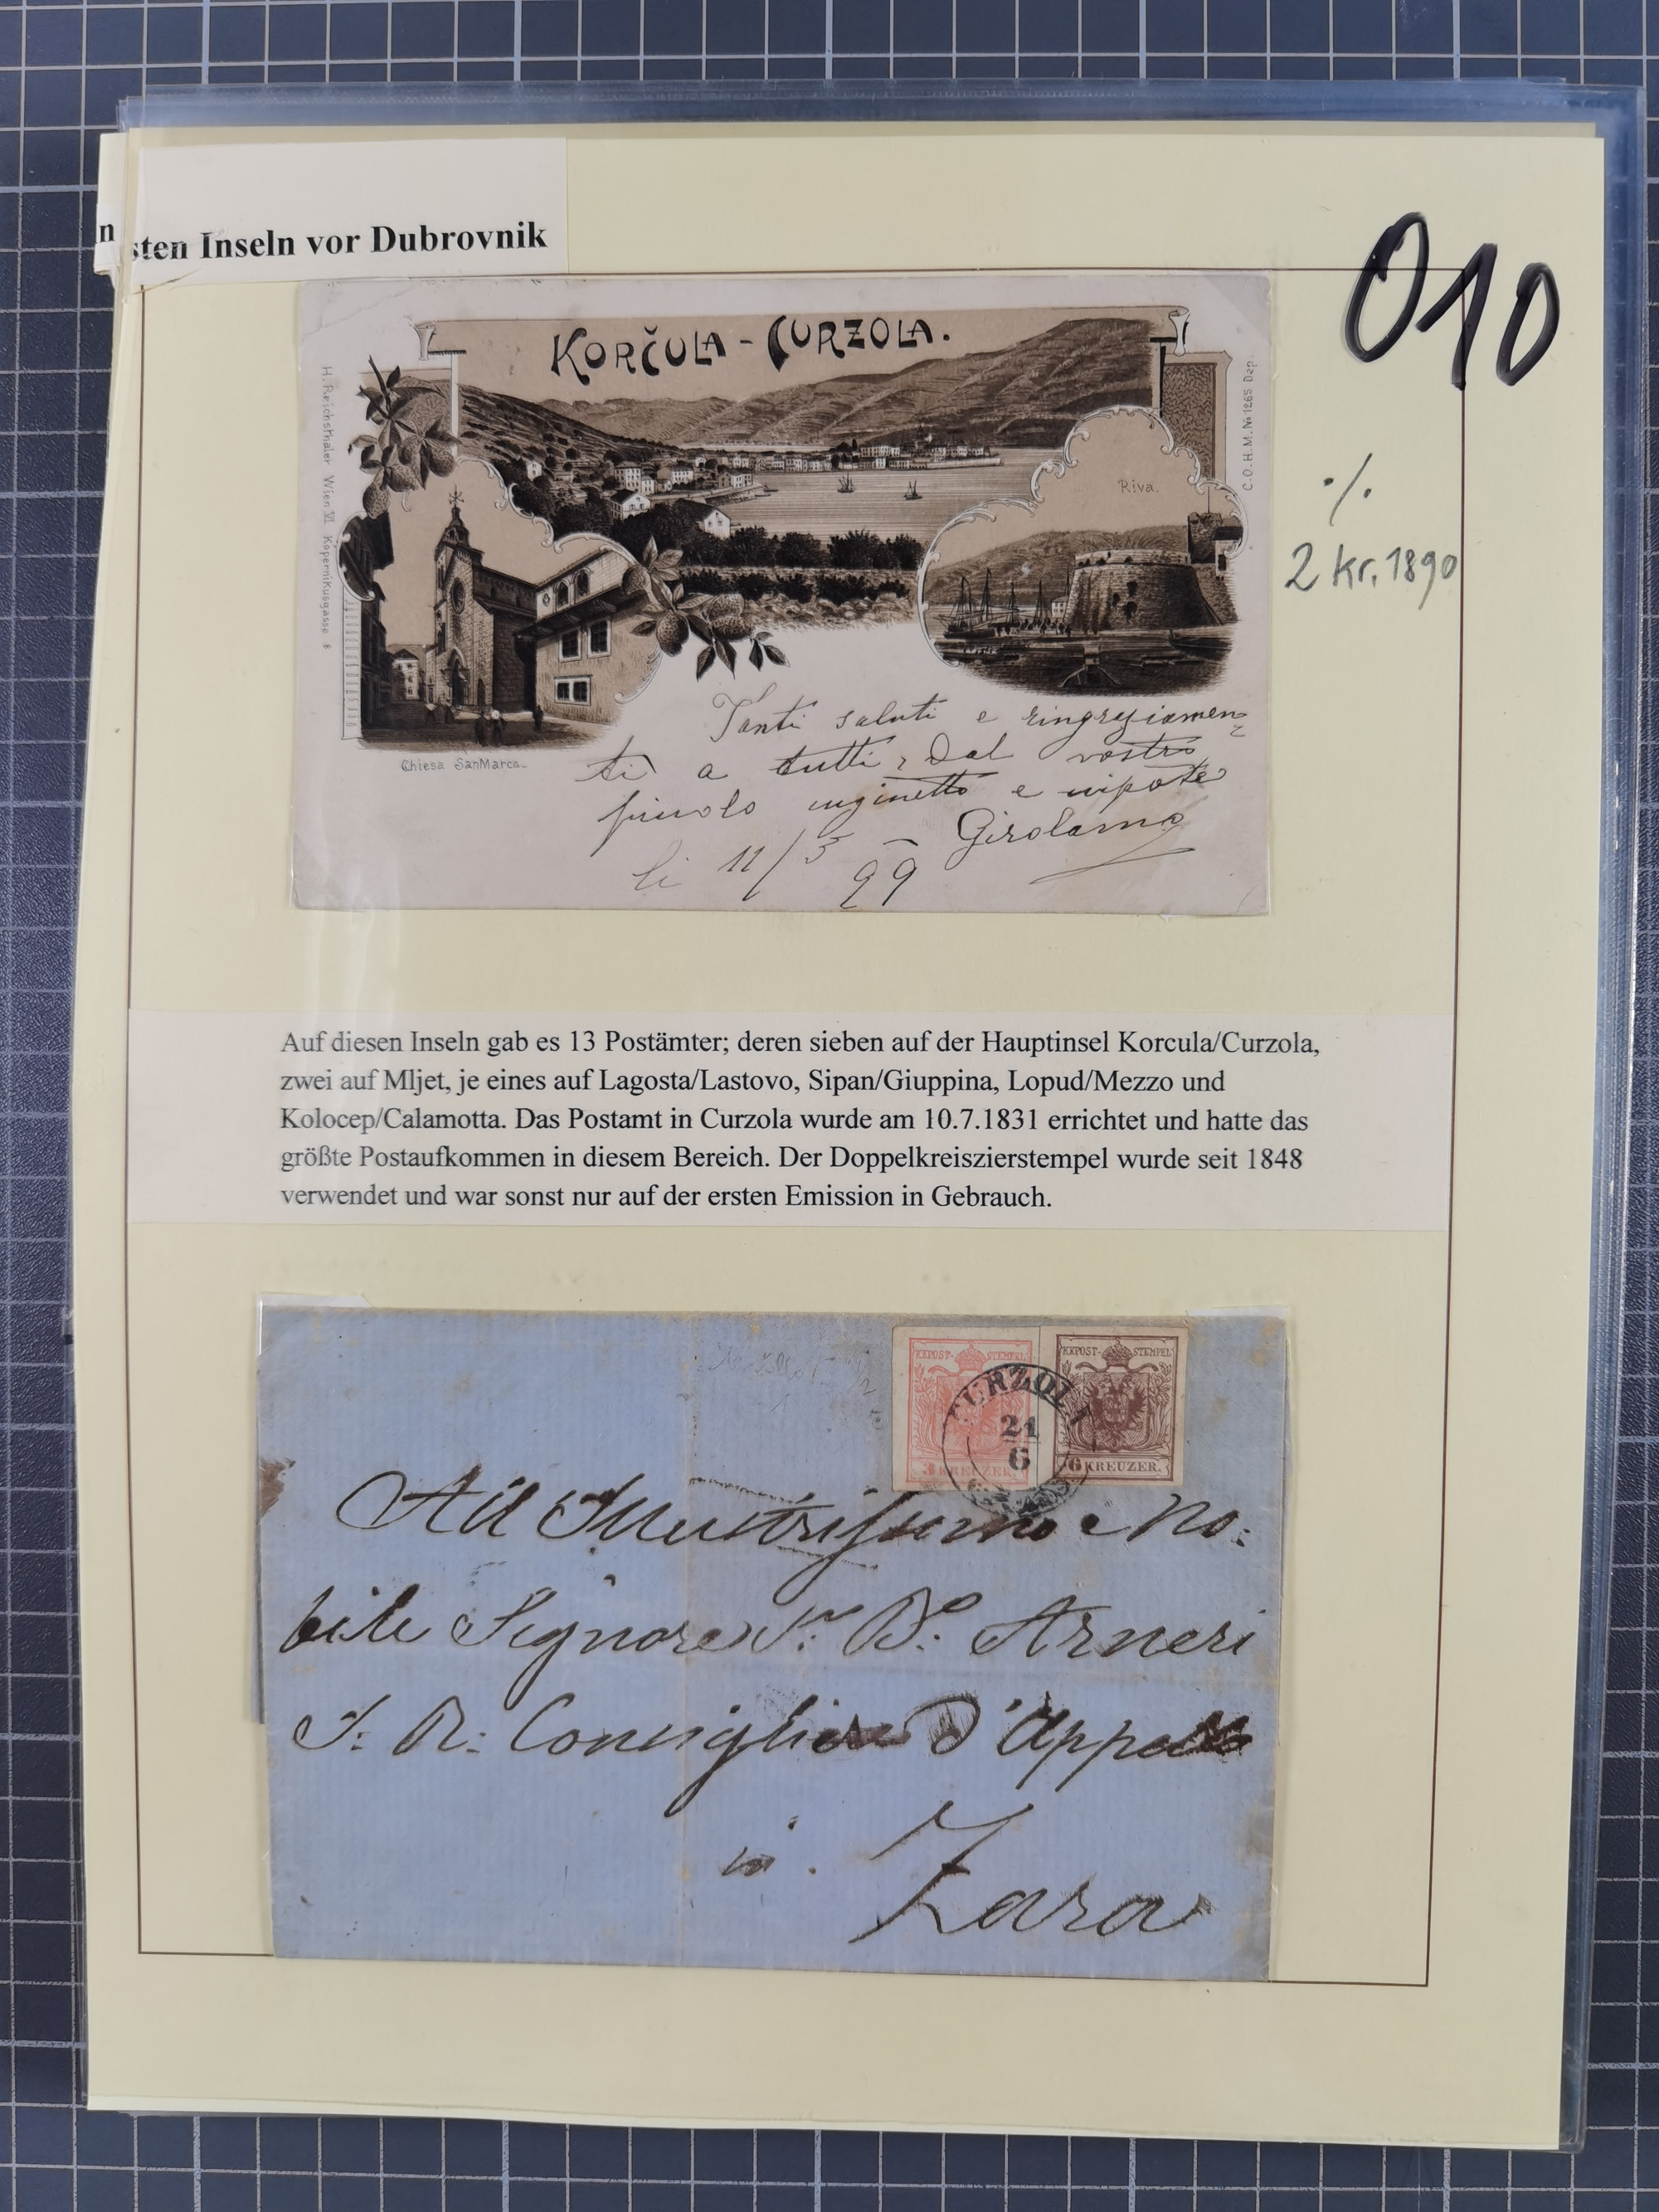 n
sten Inseln vor Dubrovnik
010
KORČULA - CURZOLA.
H. Reichsthaler Wien VI. Kopernikusgasse 8
C.O.H.M. № 1265 Dep.
Riva.
·/.
2 Kr. 1890
Chiesa San Marco.
Tanti saluti e ringraziamen
ti a tutti, Dal vostro
piccolo cuginetto e nipote
Girolamo
li 11/3 - 99
Auf diesen Inseln gab es 13 Postämter; deren sieben auf der Hauptinsel Korcula/Curzola,
zwei auf Mljet, je eines auf Lagosta/Lastovo, Sipan/Giuppina, Lopud/Mezzo und
Kolocep/Calamotta. Das Postamt in Curzola wurde am 10.7.1831 errichtet und hatte das
größte Postaufkommen in diesem Bereich. Der Doppelkreiszierstempel wurde seit 1848
verwendet und war sonst nur auf der ersten Emission in Gebrauch.
KKPOST-STEMPEL
3 KREUZER
KKPOST-STEMPEL
6 KREUZER.
CURZOLA
21
6
All Illustrissimo e No:
bile Signore Sr: Dr: Arneri
I: R: Consigliere d'Appello
in.
Zara